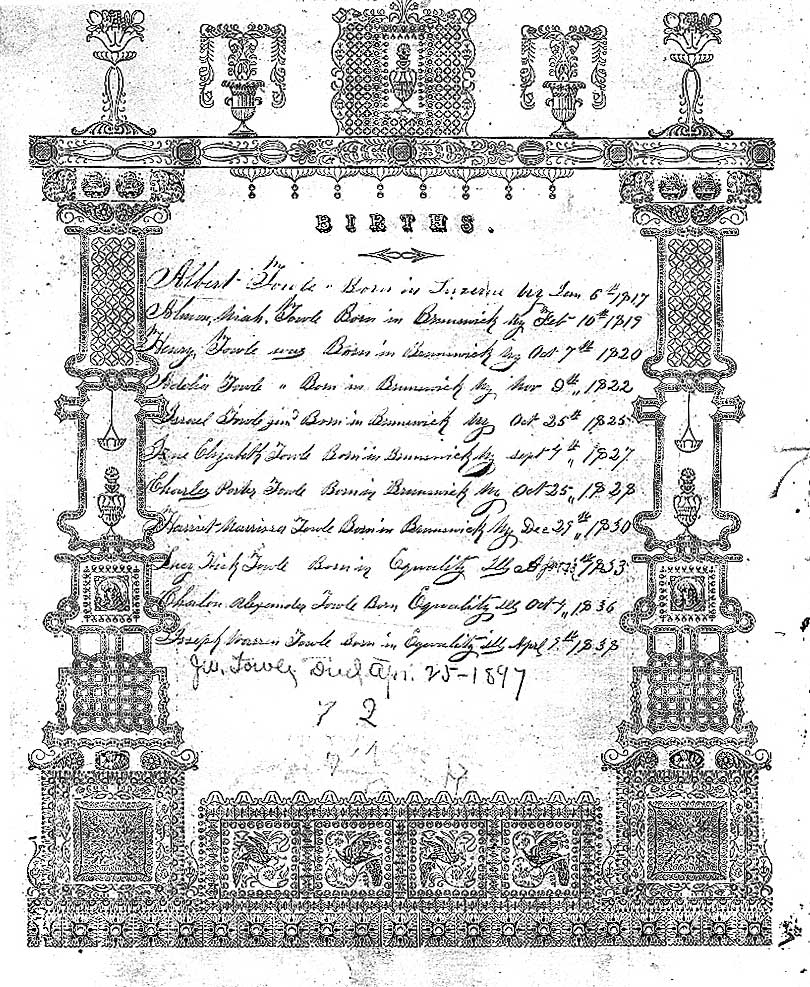 BIRTHS.
Albert Towle " Born in Luzerne Ny Jan 6th 1817
Towle Born in Brunswick Ny Feb 10th 1819
Henry, Towle was Born in Brunswick Ny Oct 7th 1820
Towle " Born in Brunswick Ny Nov 9th,, 1822
Israel Towle junr Born in Brunswick Ny Oct 25th 1825
Jane Elizabeth Towle Born in Brunswick Ny Sept 4th,, 1827
Charles Porter Towle Born in Brunswick Ny Oct 25,, 1828
Harriet Towle Born in Brunswick Ny Dec 29th,, 1830
Towle Born in Equality Ills 1833
Alexander Towle Born Equality Ills Oct 1836
Joseph Warren Towle Born in Equality Ills Aprl 9th 1838
J.W. Towle Died Apr. 25-1897
7 2